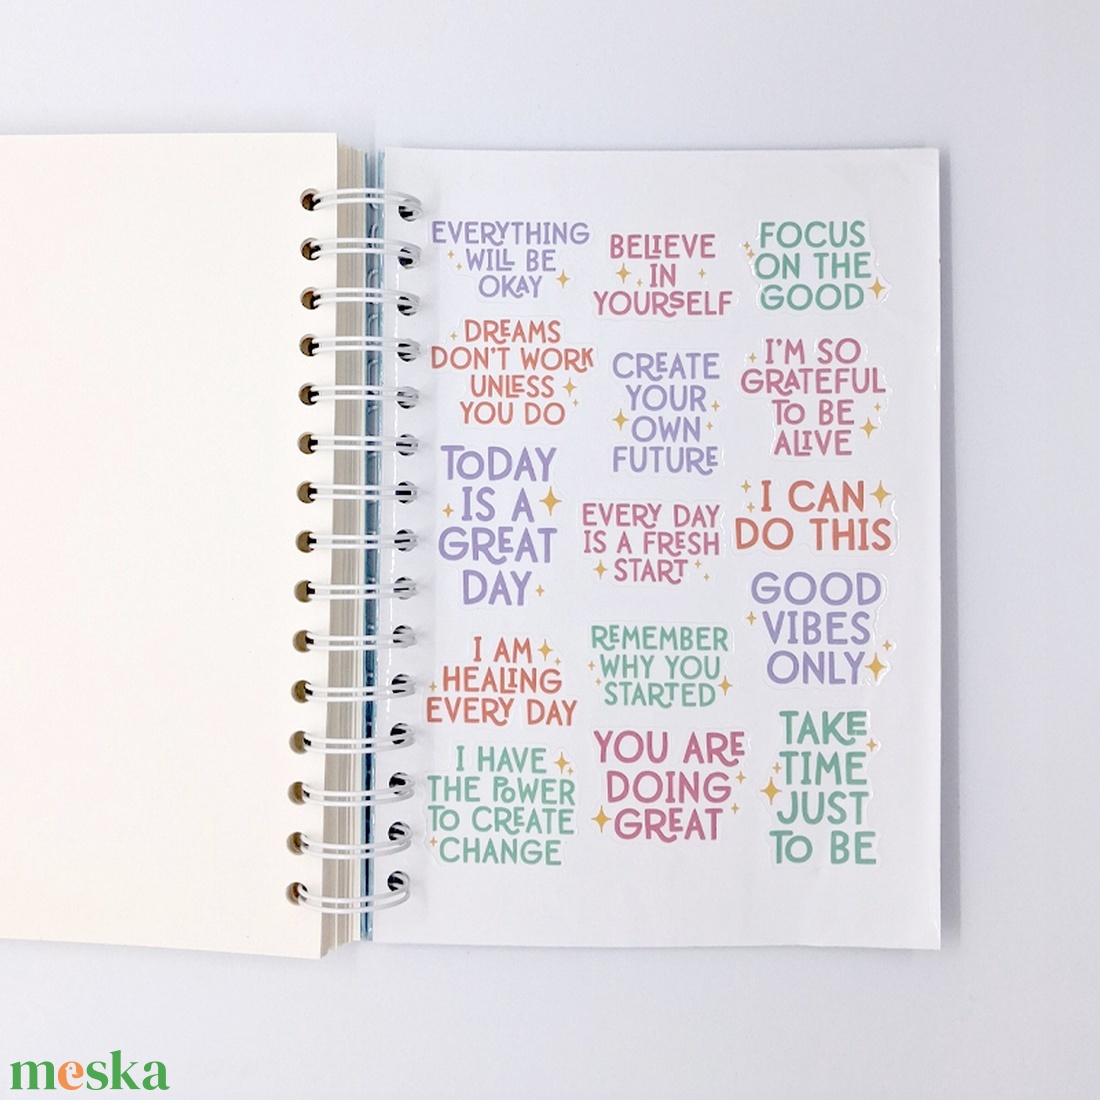 EVERYTHING
WILL BE
OKAY
DREAMS
DON'T WORK
UNLESS
YOU DO
TODAY
IS A
GREAT
DAY
I AM
HEALING
EVERY DAY
I HAVE
THE POWER
TO CREATE
CHANGE
BELIEVE
IN
YOURSELF
CREATE
YOUR
OWN
FUTURE
EVERY DAY
IS A FRESH
START
REMEMBER
WHY YOU
STARTED
YOU ARE
DOING
GREAT
FOCUS
ON THE
GOOD
I'M SO
GRATEFUL
TO BE
ALIVE
I CAN
DO THIS
GOOD
VIBES
ONLY
TAKE
TIME
JUST
TO BE
meska